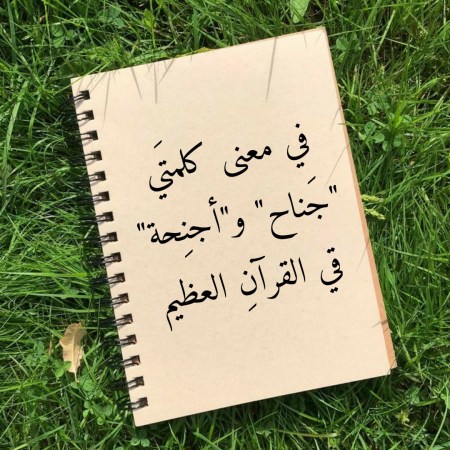 في معنى كلمتيَ
"جَناح" و"أجنِحة"
في القرآنِ العظيم